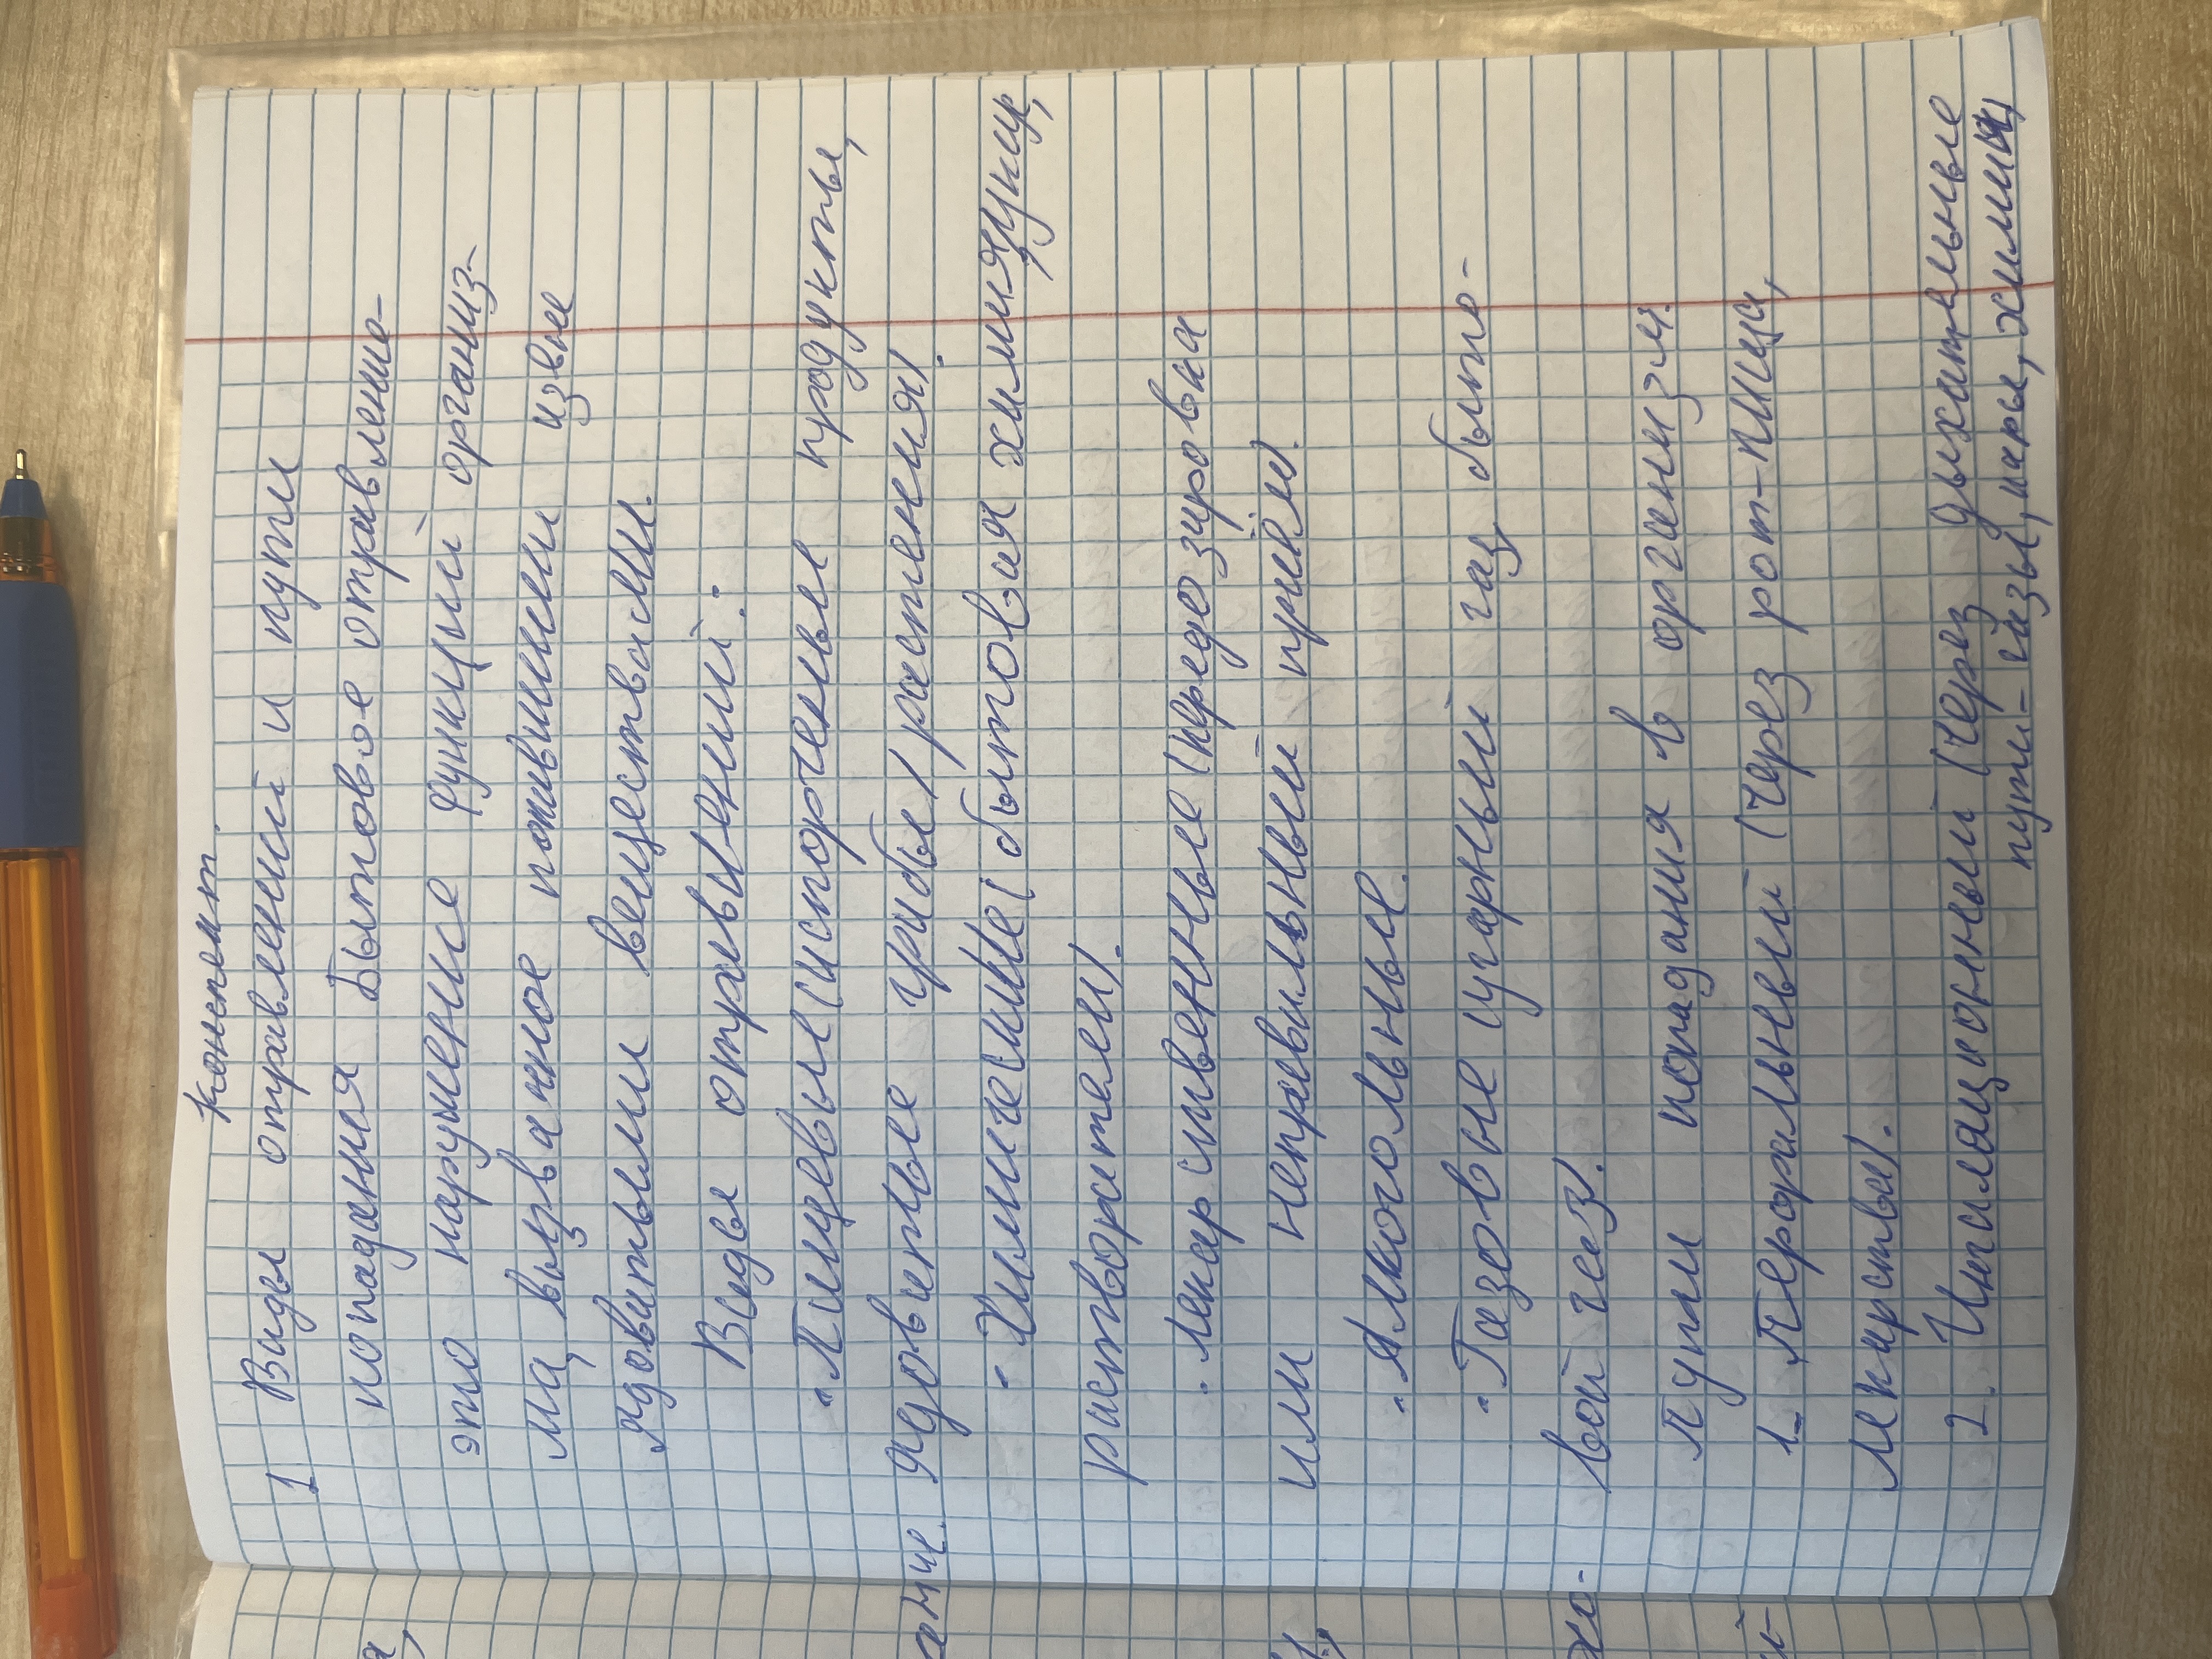 Конспект.
1 Виды отравлений и пути
попадания Бытовое отравление-
это нарушение функций организ-
ма, вызванное попавшими извне
ядовитыми веществами.
Виды отравлений:
• Пищевые (испорченные продукты,
ядовитые грибы/растения).
• Химические (бытовая химия, уксус,
растворители).
• Лекарственные (передозировка
или неправильный приём).
• Алкогольные.
• Газовые угарный газ, быто-
вой газ).
Пути попадания в организм.
1. Пероральный (через рот-пища,
лекарства).
2. Ингаляционный (через дыхательные
пути- газы, пары, химии,